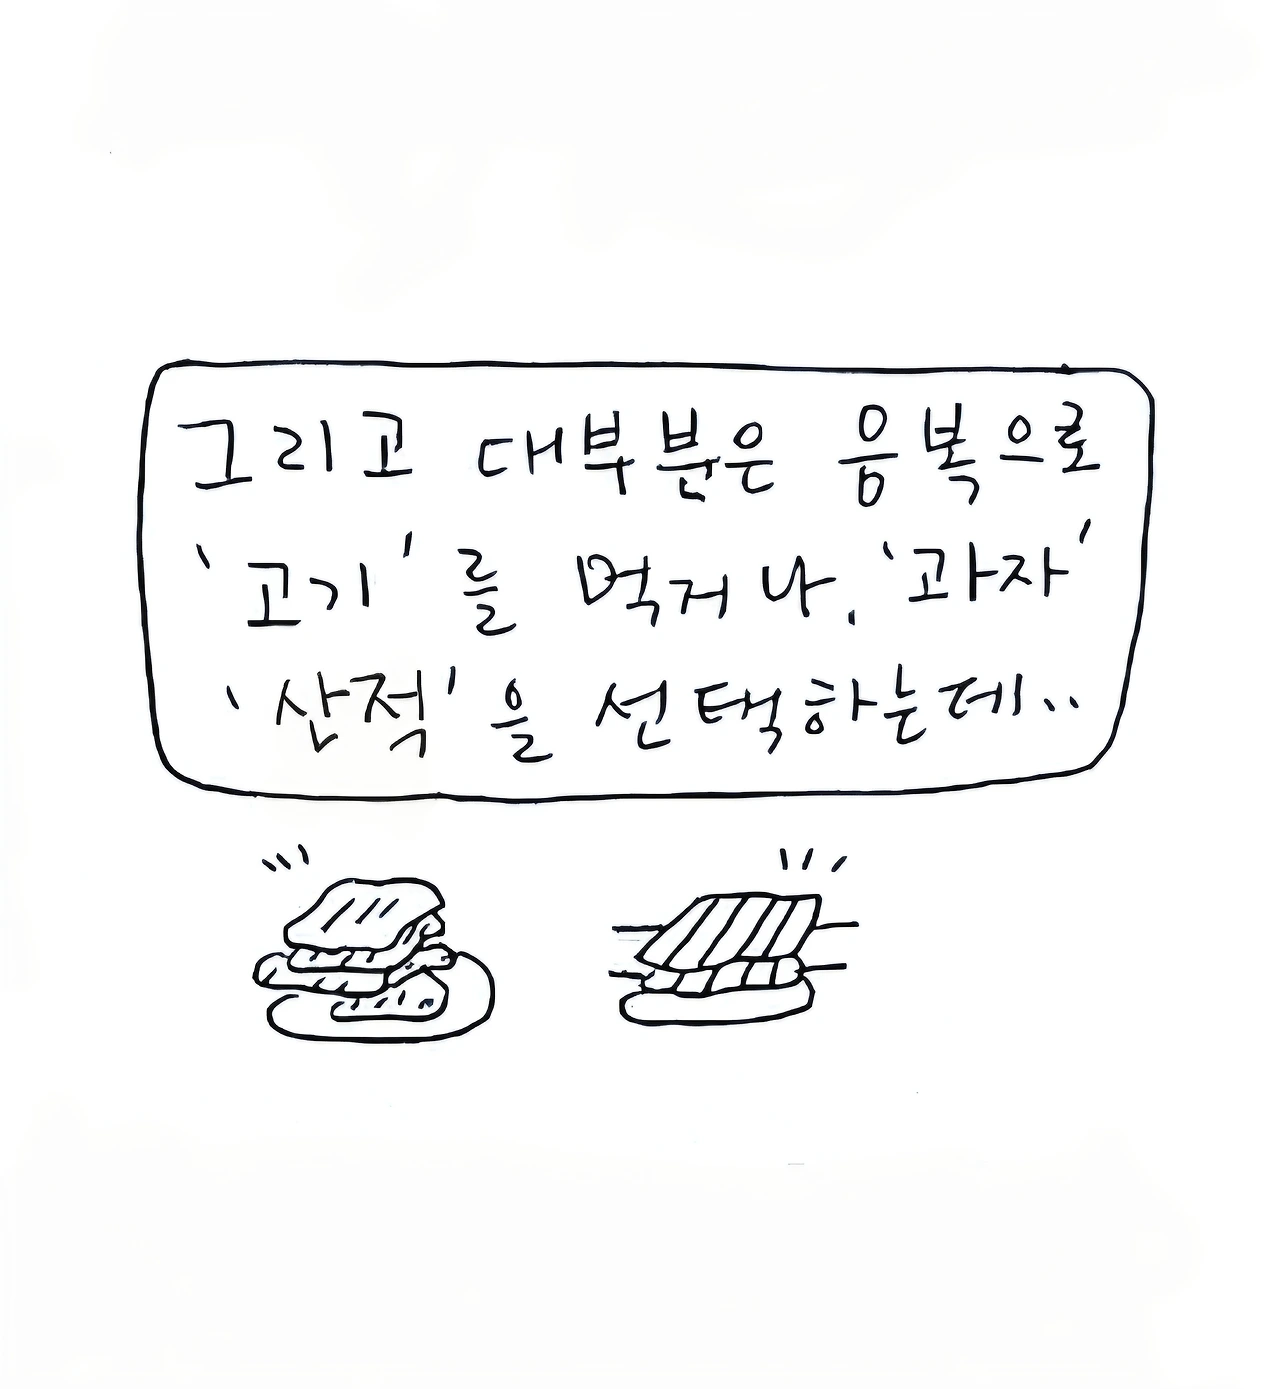 그리고 대부분은 음복으로
'고기'를 먹거나, '과자'
'산적'을 선택하는데..